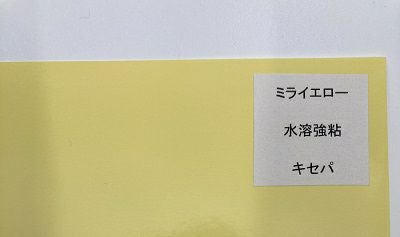 ミライエロー
水溶強粘
キセパ